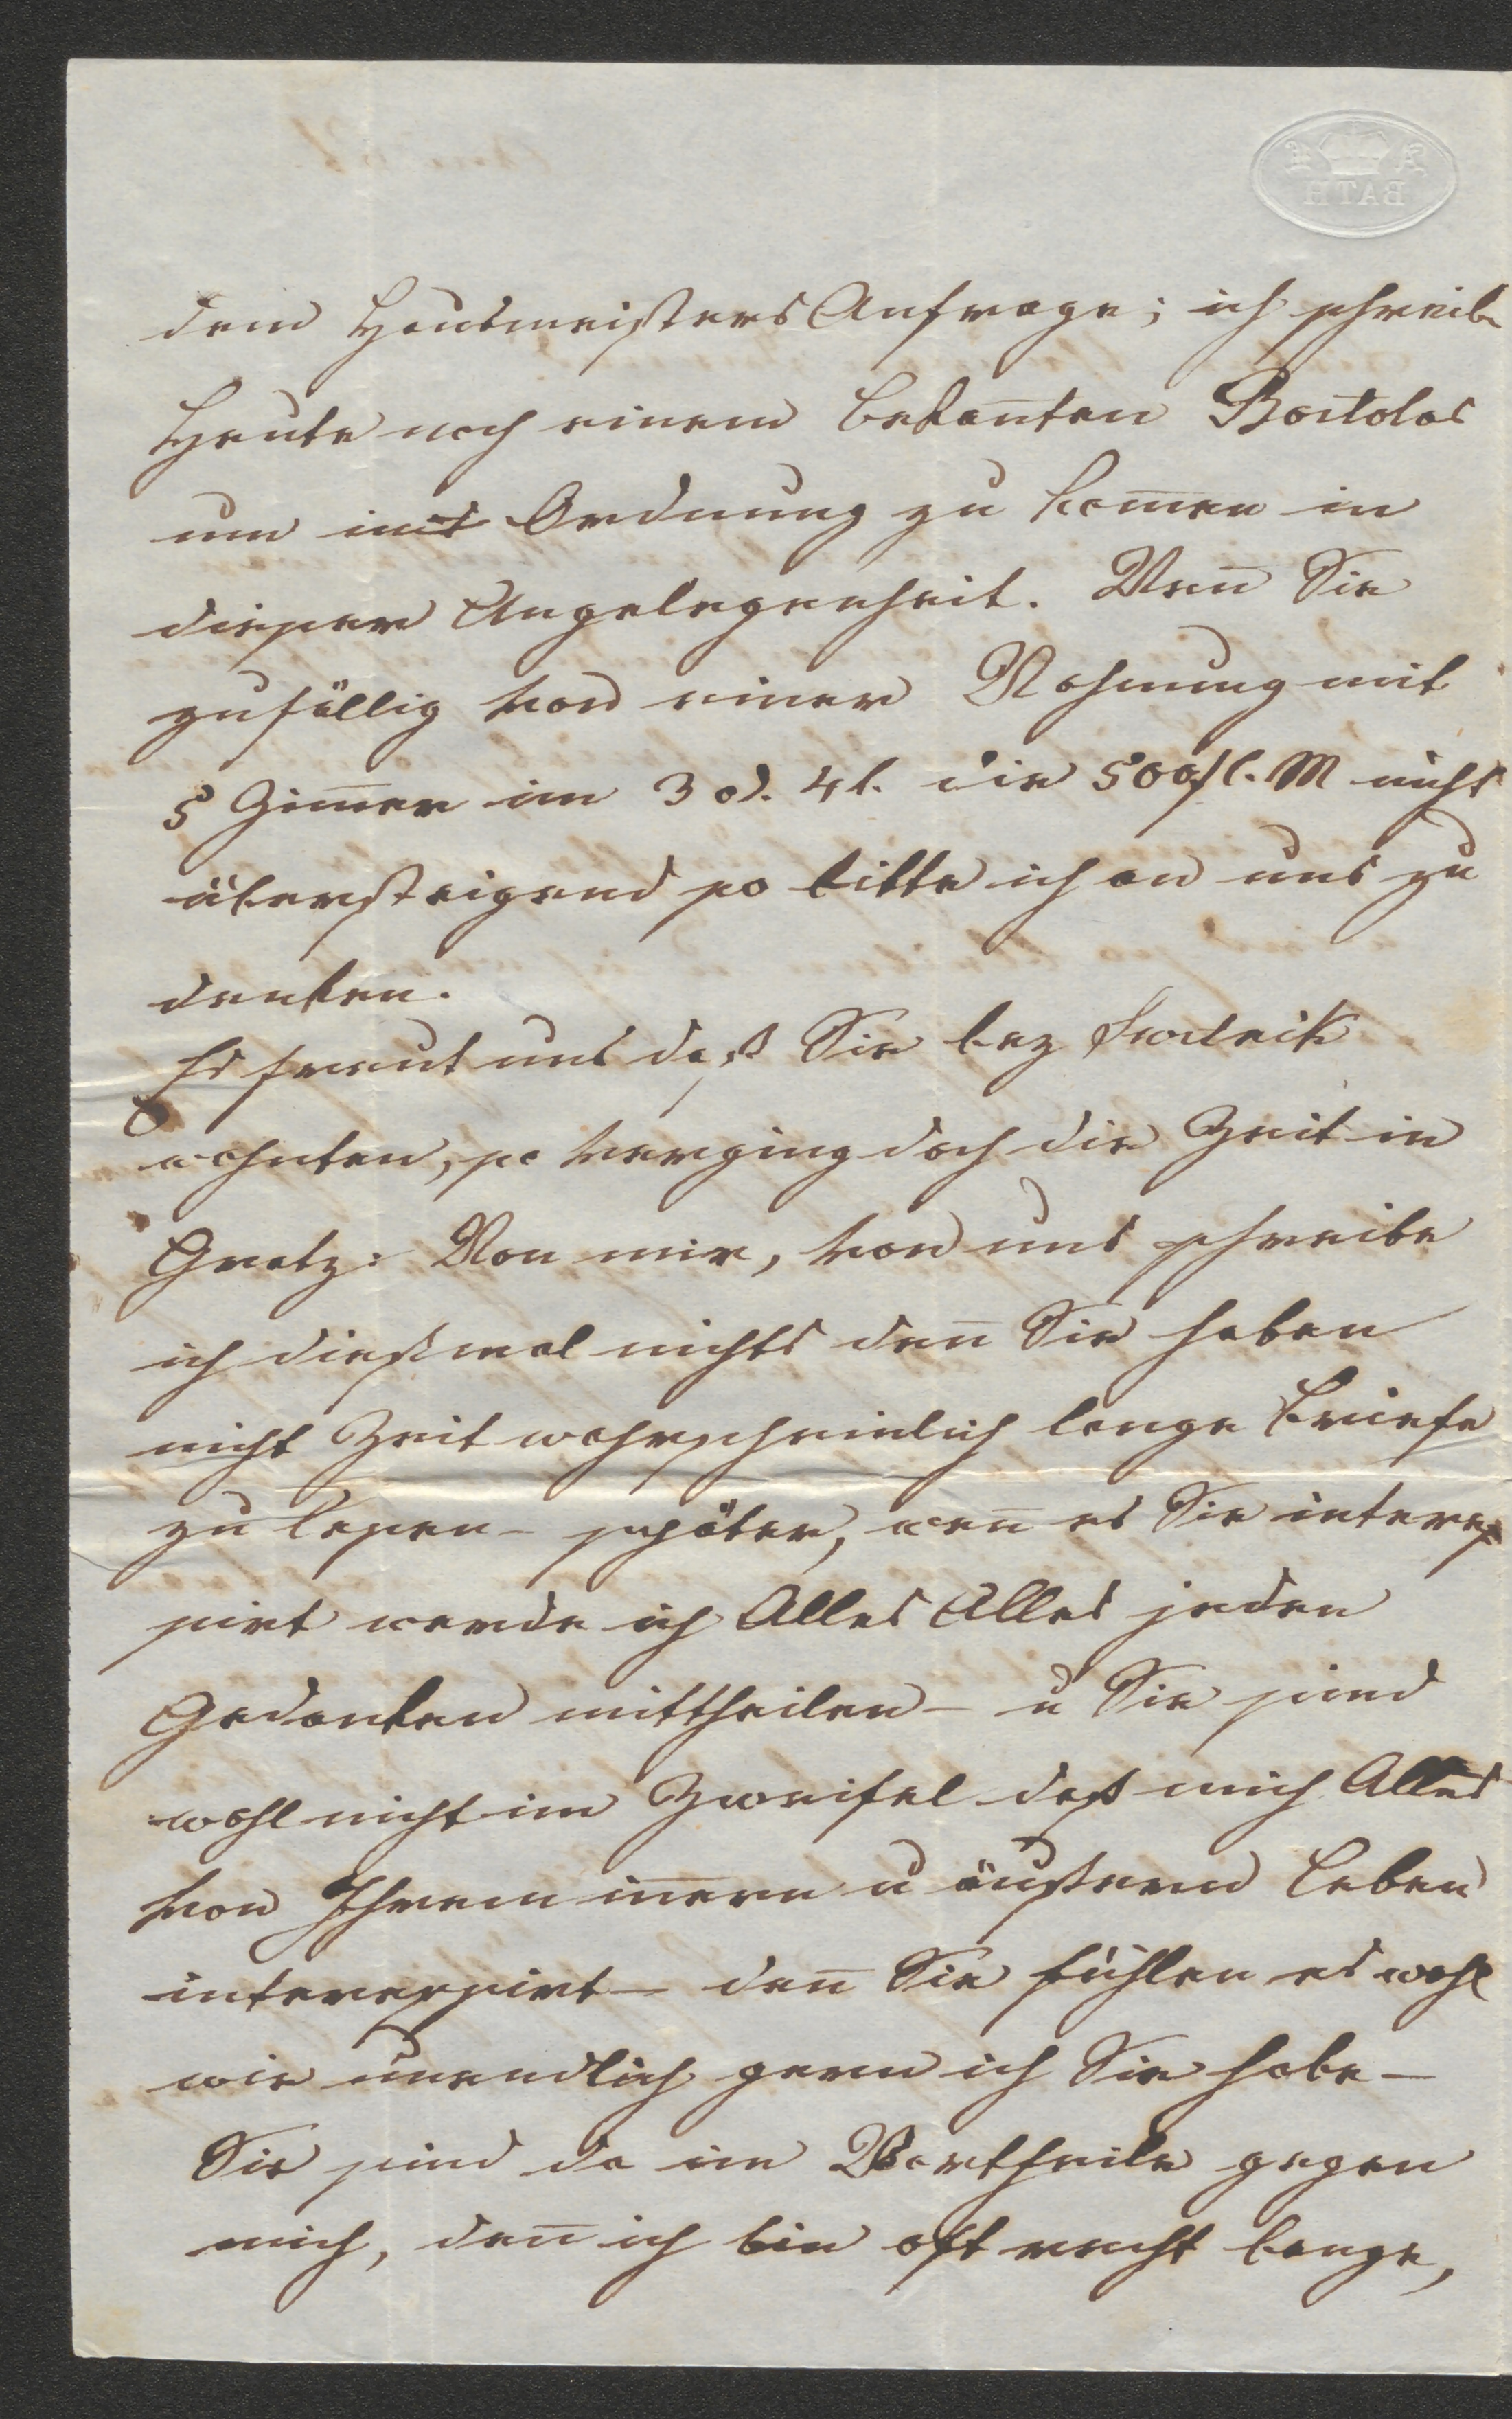 BATH
dem Hausmeisters Anfrage; ich schreibe
Heute noch einem bekan̄ten Bartolas
um ins Ordnung zu kom̄en in
dieser Angelegenheit. Wen̄ Sie
zufällig von einer Wohnung mit
5 Zim̄er im 3 od. 4t. die 500 fl. M nicht
übersteigend so bitte ich an uns zu
denken.
Es freut uns daß Sie bey
wohnten, so verging doch die Zeit in
Gratz: Von mir, von uns schreibe
ich dießmal nichts den̄ Sie haben
nicht Zeit wahrscheinlich lange Briefe
zu lesen – später, wen̄ es Sie interes
sirt werde ich Alles Alles jeden
Gedanken mittheilen – u Sie sind
wohl nicht im Zweifel daß mich Alles
von Ihrem in̄ern u äußern Leben
interessirt – den̄ Sie fühlen es wohl
wie unendlich gern ich Sie habe –
Sie sind da im Vortheile gegen
mich, den̄ ich bin oft recht bange,